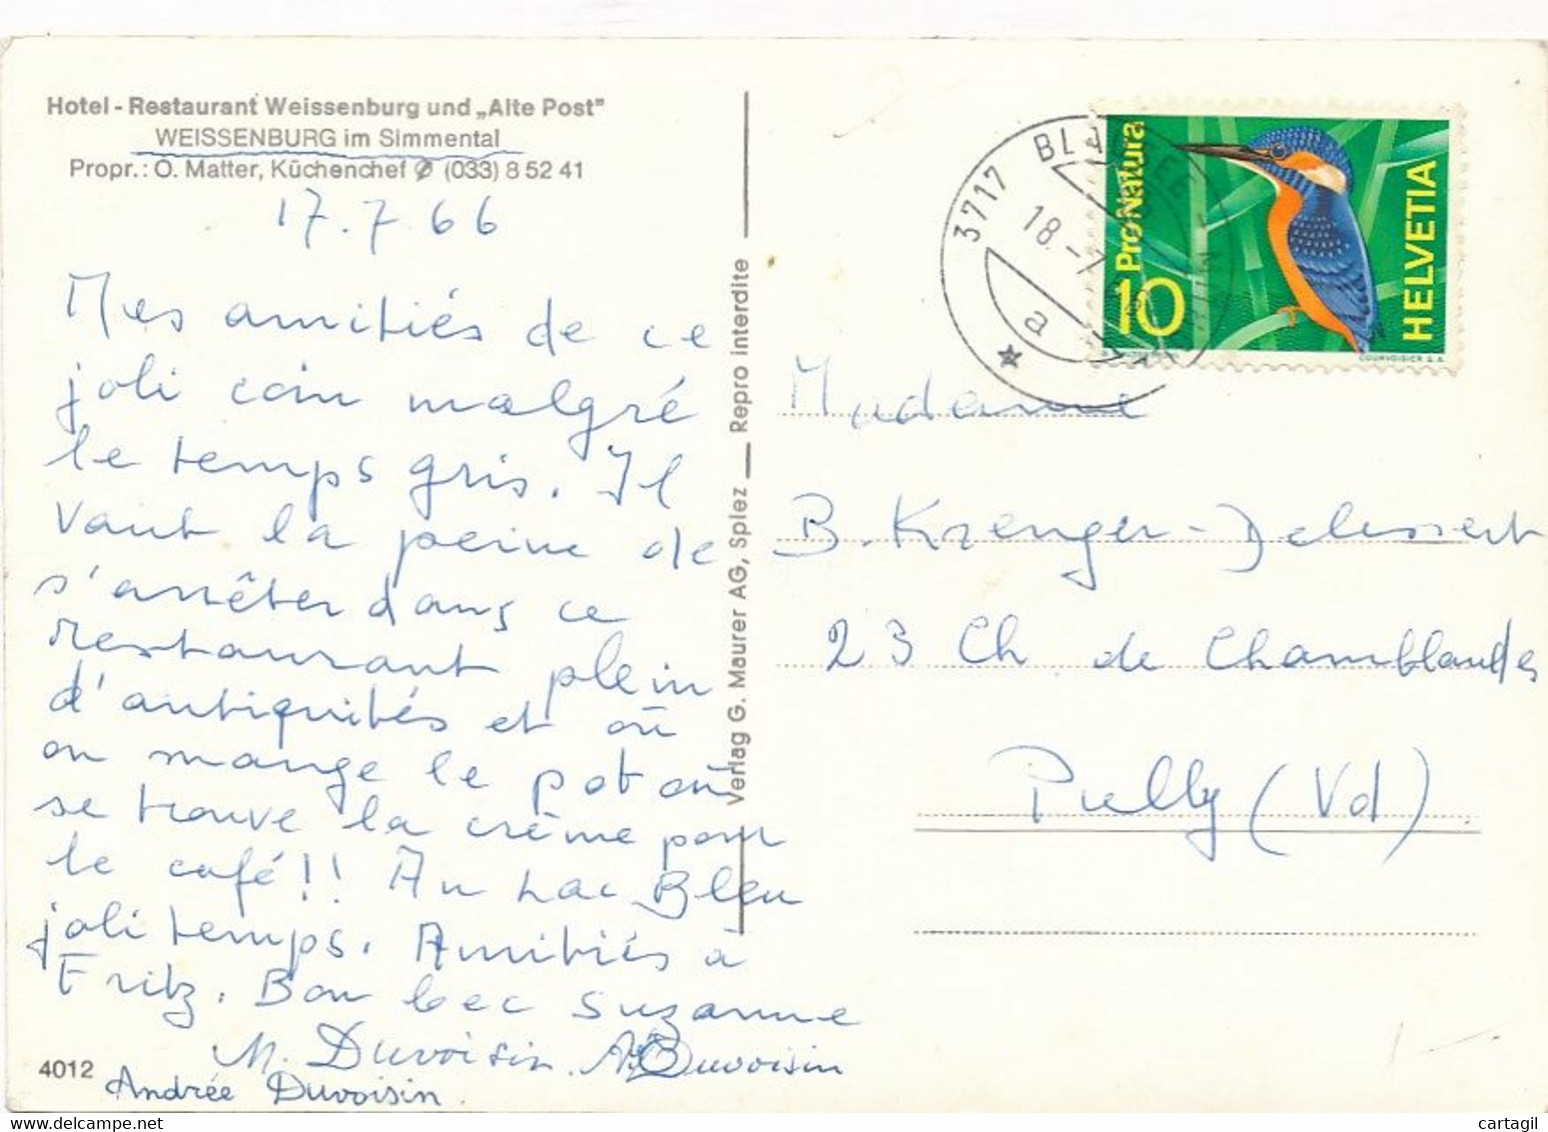 Hotel - Restaurant Weissenburg und „Alte Post"
WEISSENBURG im Simmental
Propr.: O. Matter, Küchenchef ∅ (033) 8 52 41
17.7.66
Mes amitiés de ce
joli coin malgré
le temps gris. Il
vaut la peine de
s'arrêter dans ce
restaurant plein
d'antiquités et où
on mange le pot où
se trouve la crème pour
le café!! Au Lac Bleu
joli temps. Amitiés à
Fritz. Bon bec Suzanne
M. Duvoisin. A. Duvoisin
4012
Andrée Duvoisin.
Verlag G. Maurer AG, Spiez — Repro interdite
3717 BLAUSEE
18.-7
a
ProNatura
10
HELVETIA
COURVOISIER S.A.
Madame
B. Krenger-Delessert
23 Ch de Chamblandes
Pully (Vd)
cartagil